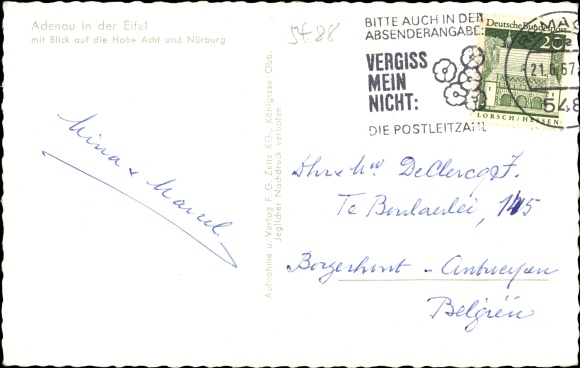 Adenau in der Eifel
mit Blick auf die Hohe Acht und Nürburg
5488
BITTE AUCH IN DER
ABSENDERANGABE:
VERGISS
MEIN
NICHT:
DIE POSTLEITZAHL
Deutsche Bundespost
20
LORSCH/HESSEN
21.6.67
548
Aufnahme u. Verlag F. G. Zeitz KG., Königsee Obb.
Jeglicher Nachdruck verboten
Mina & Marcel
Dhr & Mw DeClercq F.
Te Boelaerlei, 145
Borgerhout - Antwerpen
Belgïen